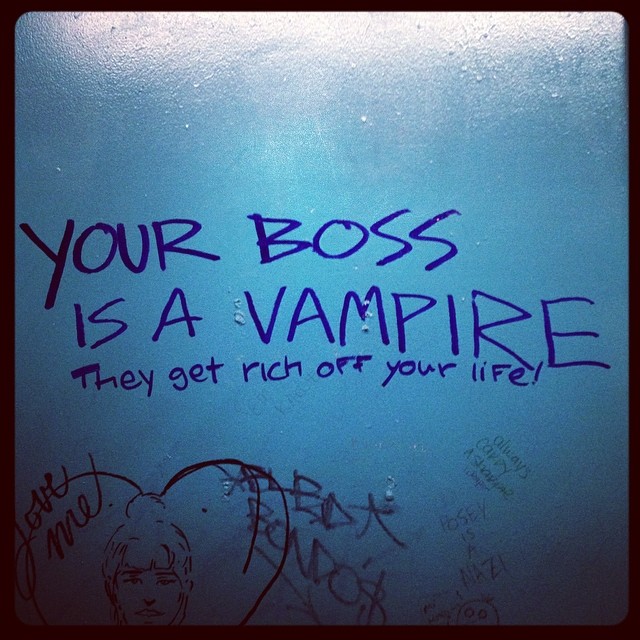 YOUR BOSS
IS A VAMPIRE
They get rich off your life!
Love
me!
always
carry
a
POSEY
IS
A
NAZI